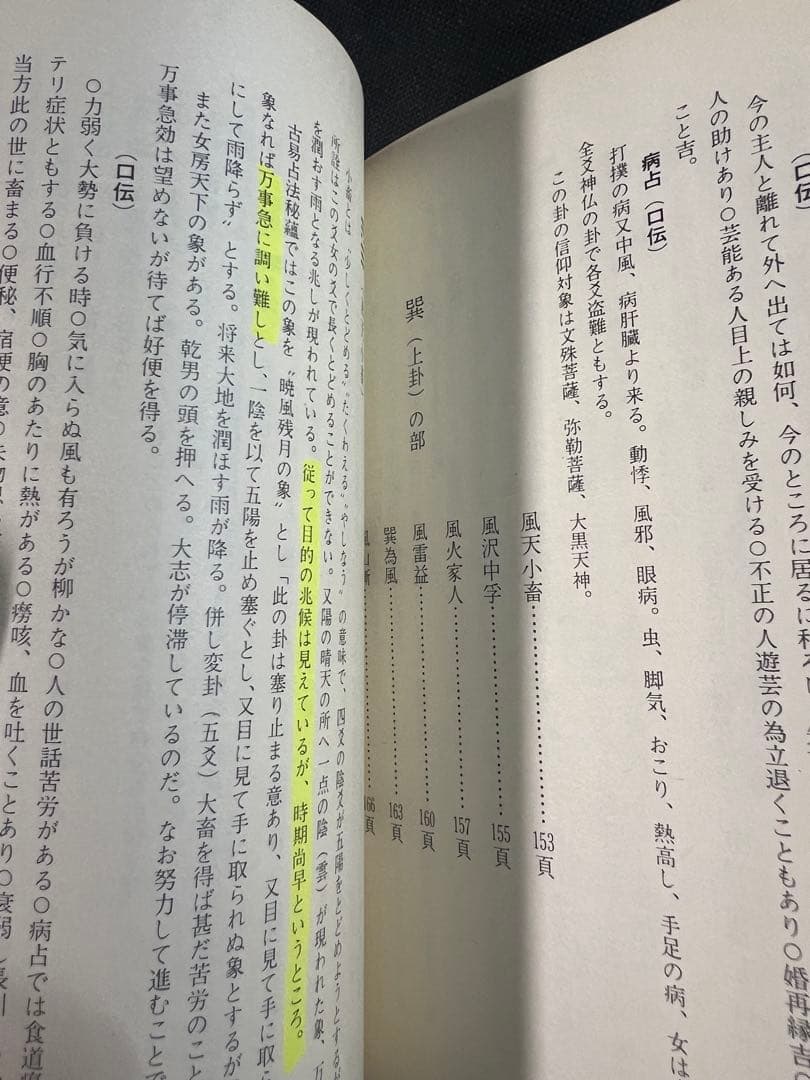 (口伝)
今の主人と離れて外へ出ては如何、今のところに居るに
人の助けあり〇芸能ある人目上の親しみを受ける〇不正の人遊芸の為立退くこともあり〇婚再縁吉〇
こと吉。
病占（口伝）
打撲の病又中風、病肝臓より来る。動悸、風邪、眼病。虫、脚気、おこり、熱高し、手足の病、女は
全爻神仏の卦で各爻盗難ともする。
この卦の信仰対象は文殊菩薩、弥勒菩薩、大黒天神。
巽（上卦）の部
風天小畜……………………153頁
風沢中孚……………………155頁
風火家人……………………157頁
風雷益……………………160頁
巽為風……………………163頁
風山漸……………………166頁
小畜とは〝少しくとどめる〟〝たくわえる〟〝やしなう〟の意味で、四爻の陰爻が五陽をとどめようとするが
所詮はこの爻女の爻で長くとどめることができない。又陽の晴天の所へ一点の陰（雲）が現われた象、万
を潤おす雨となる兆しが現われている。従って目的の兆候は見えているが、時期尚早というところ。
古易占法秘蘊ではこの象を〝暁風残月の象〟とし「此の卦は塞り止まる意あり、又目に見て手に取ら
象なれば万事急に調い難しとし、一陰を以て五陽を止め塞ぐとし、又目に見て手に取られぬ象とするが
にして雨降らず〟とする。将来大地を潤ほす雨が降る。併し変卦（五爻）大畜を得ば甚だ苦労のこと
また女房天下の象がある。乾男の頭を押へる。大志が停滞しているのだ。なお努力して進むことで
万事急効は望めないが待てば好便を得る。
（口伝）
〇力弱く大勢に負ける時〇気に入らぬ風も有ろうが柳かな〇人の世話苦労がある〇病占では食道
テリ症状ともする〇血行不順〇胸のあたりに熱がある〇癆咳、血を吐くことあり〇衰弱し長引
当方此の世に畜まる〇便秘、宿便の意〇